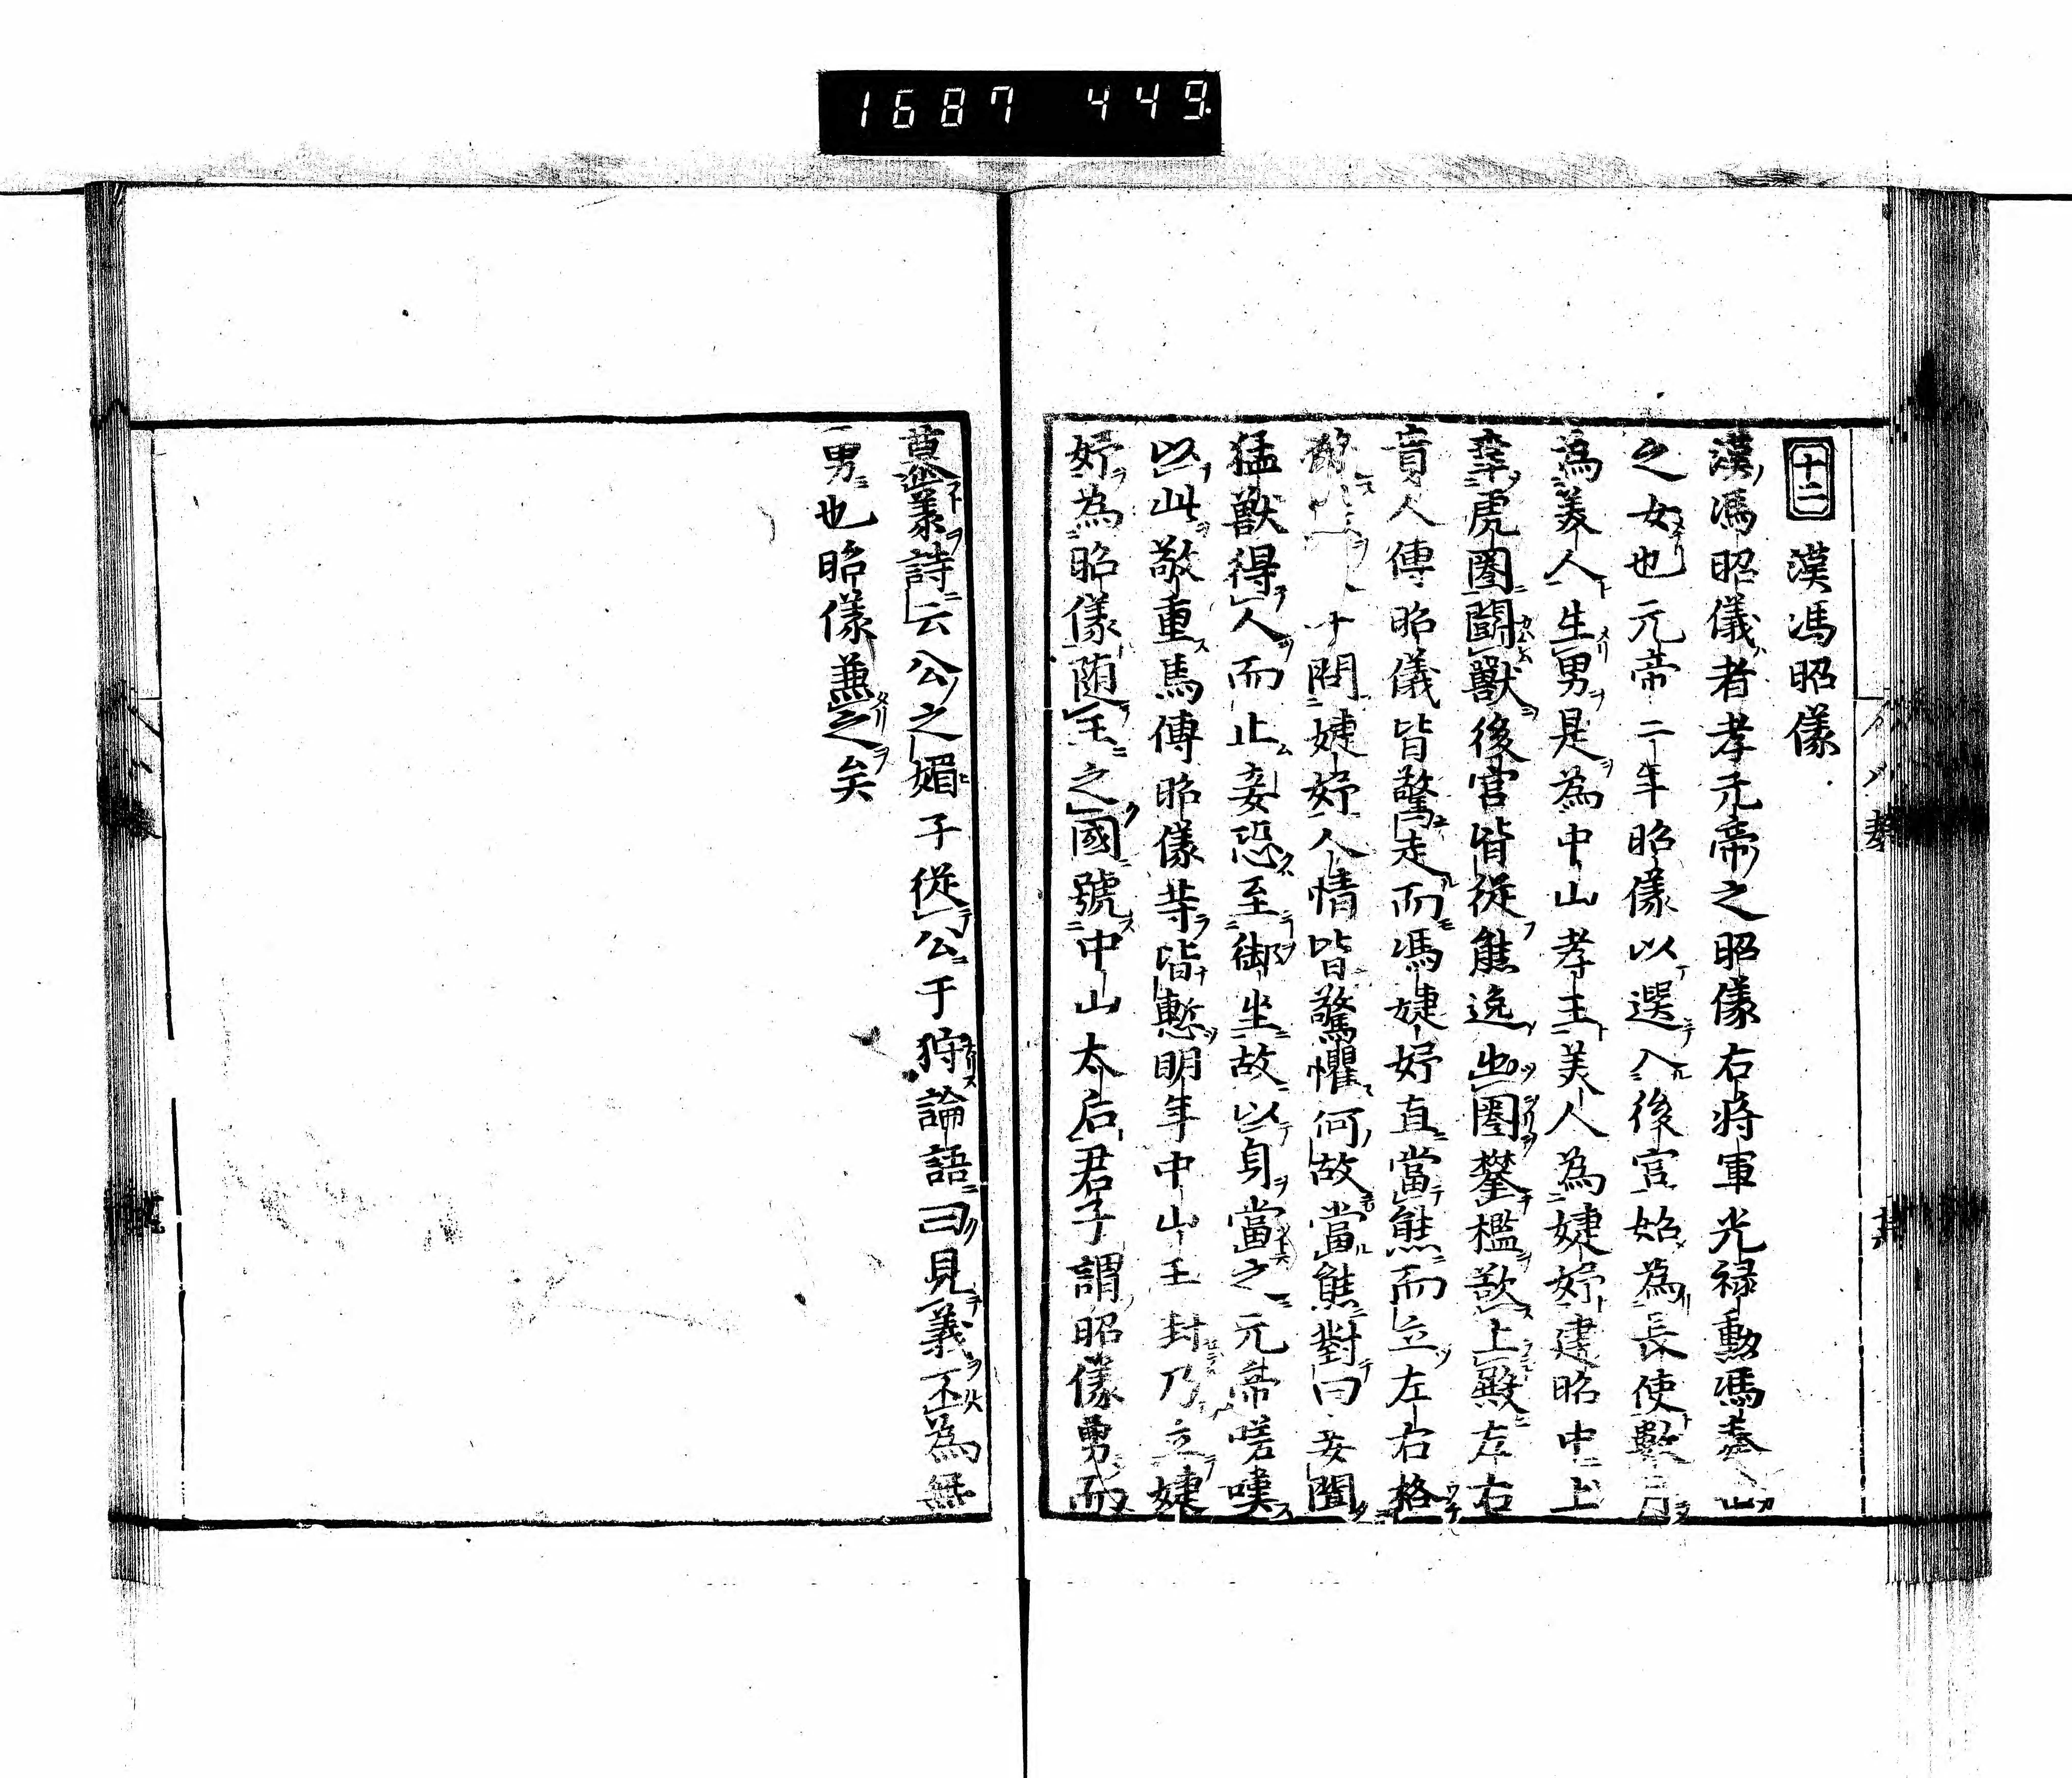 1687 449
十二 漢馮昭儀
漢馮昭儀者孝元帝之昭儀右将軍光禄勳馮奉世
之女也元帝二年昭儀以選入後宮始為長使數月
為美人生男是為中山孝王美人為婕妤建昭中上
幸虎圏闘獸後宮皆従熊逸出圏攀檻欲上殿左右
貴人傳昭儀皆驚走而馮婕妤直當熊而立左右格
殺 問婕妤人情皆驚懼何故當熊對曰妾聞
猛獸得人而止妾恐至御坐故以身當之元帝嗟嘆
以此敬重焉傅昭儀等皆慙明年中山王封乃立婕
妤為昭儀随王之國號中山太后君子謂昭儀勇而
慕義詩云公之媚子従公于狩論語曰見義不為無
勇也昭儀兼之矣